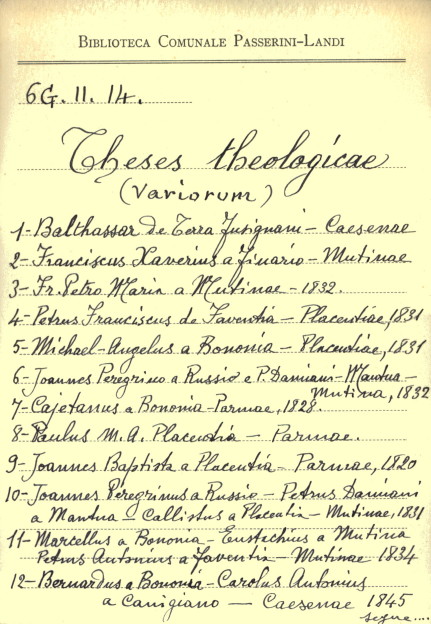 BIBLIOTECA COMUNALE PASSERINI-LANDI
6G. II. 14.
Theses theologicae
(Variorum)
1- Balthassar de Terra Jusignani - Caesenae
2- Franciscus Xaverius a Finario - Mutinae
3- Fr. Petro Maria a Mutinae - 1832.
4- Petrus Franciscus de Faventia - Placentiae, 1831
5- Michael-Angelus a Bononia - Placentiae, 1831
6- Joannes Peregrino a Russio e P. Damiani - Mantua -
Mutina, 1832
7- Cajetanus a Bononia - Parmae, 1828.
8- Paulus M. A. Placentia - Parmae.
9- Joannes Baptista a Placentia - Parmae, 1820
10- Joannes Peregrinus a Russio - Petrus Damiani
a Mantua - Callistus a Placentia - Mutinae, 1831
11- Marcellus a Bononia - Eustochius a Mutina
Petrus Antonius a Faventia - Mutinae 1834
12- Bernardus a Bononia - Carolus Antonius
a Carrigiano - Caesenae 1845
segue....